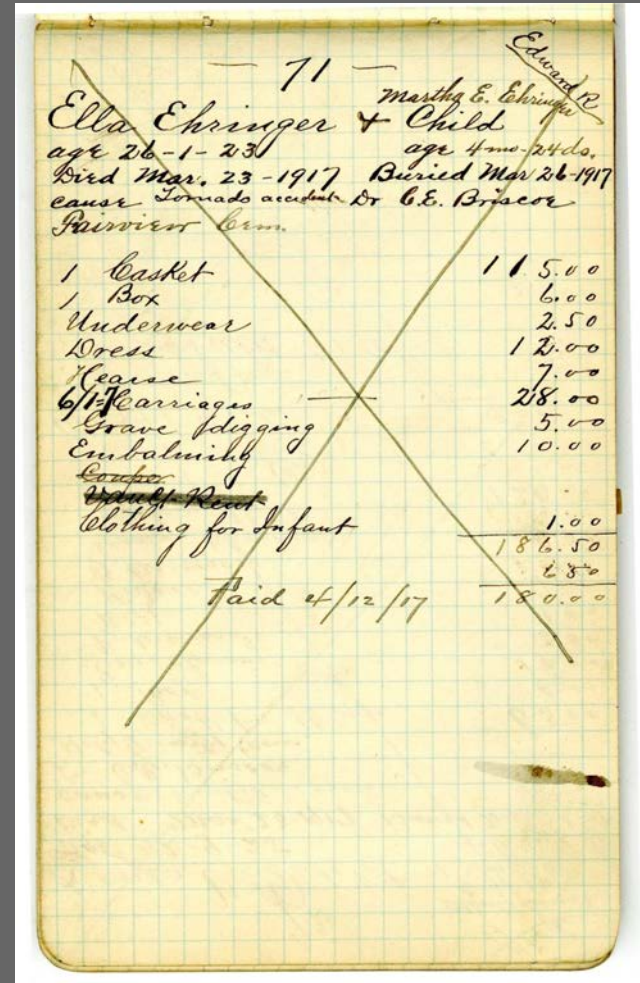 Edward R
— 71 —
Martha E. Ehringer
Ella Ehringer & Child
age 26-1-23 age 4 mo-24 ds.
Died Mar. 23-1917 Buried Mar 26-1917
cause Tornado accident Dr C.E. Briscoe
Fairview Cem.
1 Casket 115.00
1 Box 6.00
Underwear 2.50
Dress 12.00
Hearse 7.00
6/1=7 Carriages 28.00
Grave digging 5.00
Embalming 10.00
Coupe
Vault Rent
Clothing for Infant 1.00
186.50
6 50
Paid 4/12/17 180.00